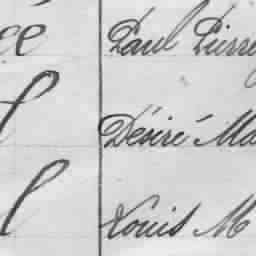 ée Paul Pierre
l Désiré Ma
l Louis M